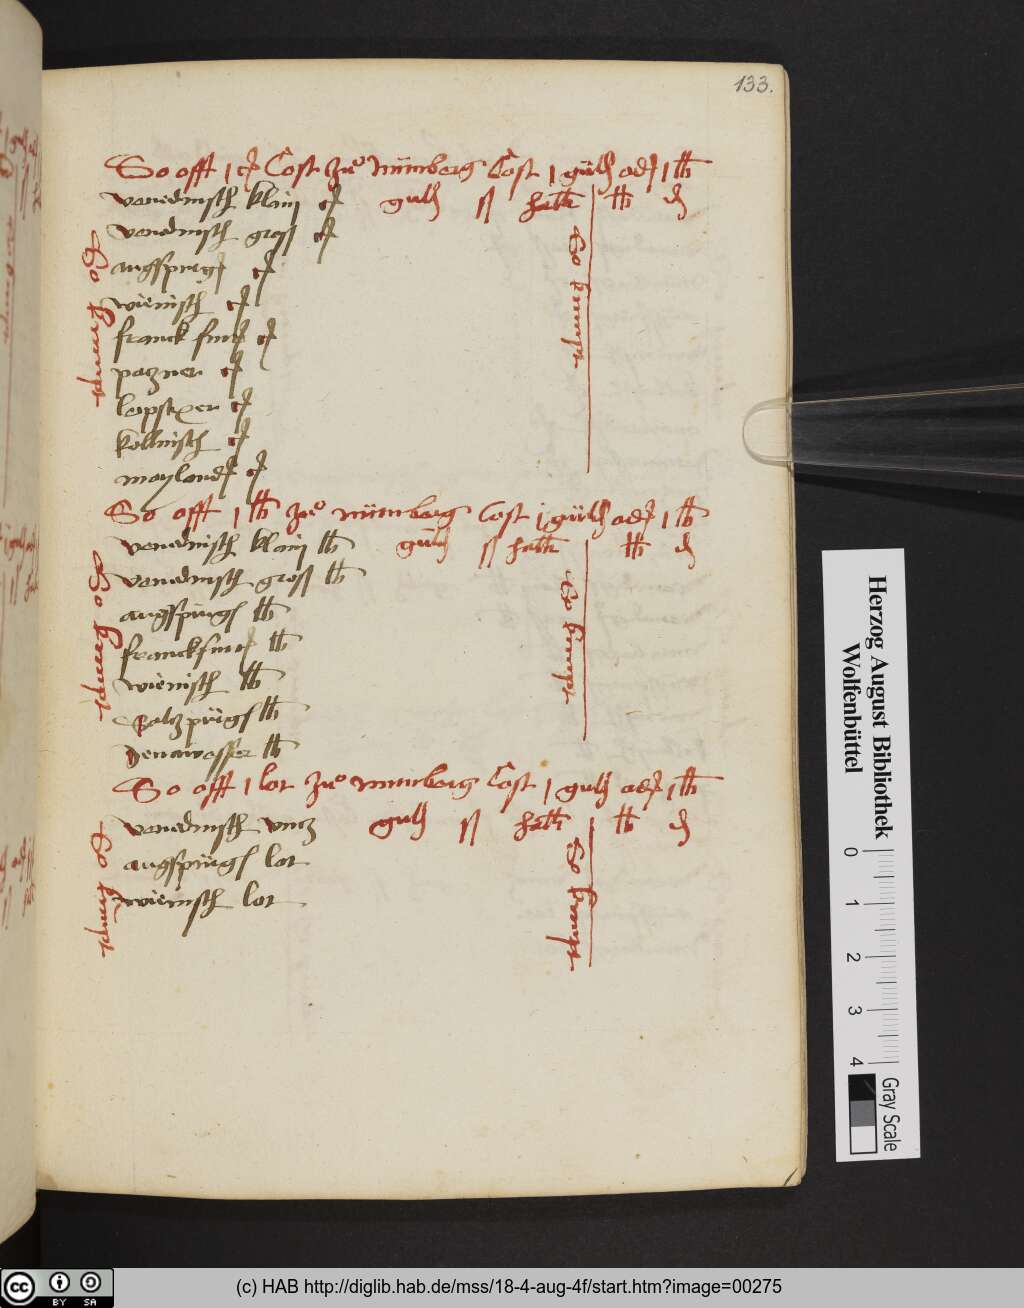 133.
So offt 1 ct Cost zu nürnberg Cost 1 guld oder 1 lb
venedinsch klain ct guld ß haller lb d
venedinsch groß ct
augspurg ct
wienisch ct
franckfurt ct
pozner ct
kollnisch ct
mayland ct
So kumpt
So kumpt
So offt 1 lb zu nürnberg Cost 1 guld oder 1 lb
venednisch klain lb guld ß haller lb d
venednisch groß lb
augspurgs lb
franckfurt lb
wienisch lb
salzpurgs lb
So kumpt
So kumpt
So offt 1 lot zu nürnberg Cost 1 guld oder 1 lb
venednisch vntz guld ß haller lb d
augspurgs lot
wienisch lot
So kumpt
So kumpt
Herzog August Bibliothek
Wolfenbüttel
0 1 2 3 4
Gray Scale
cc BY SA
(c) HAB http://diglib.hab.de/mss/18-4-aug-4f/start.htm?image=00275